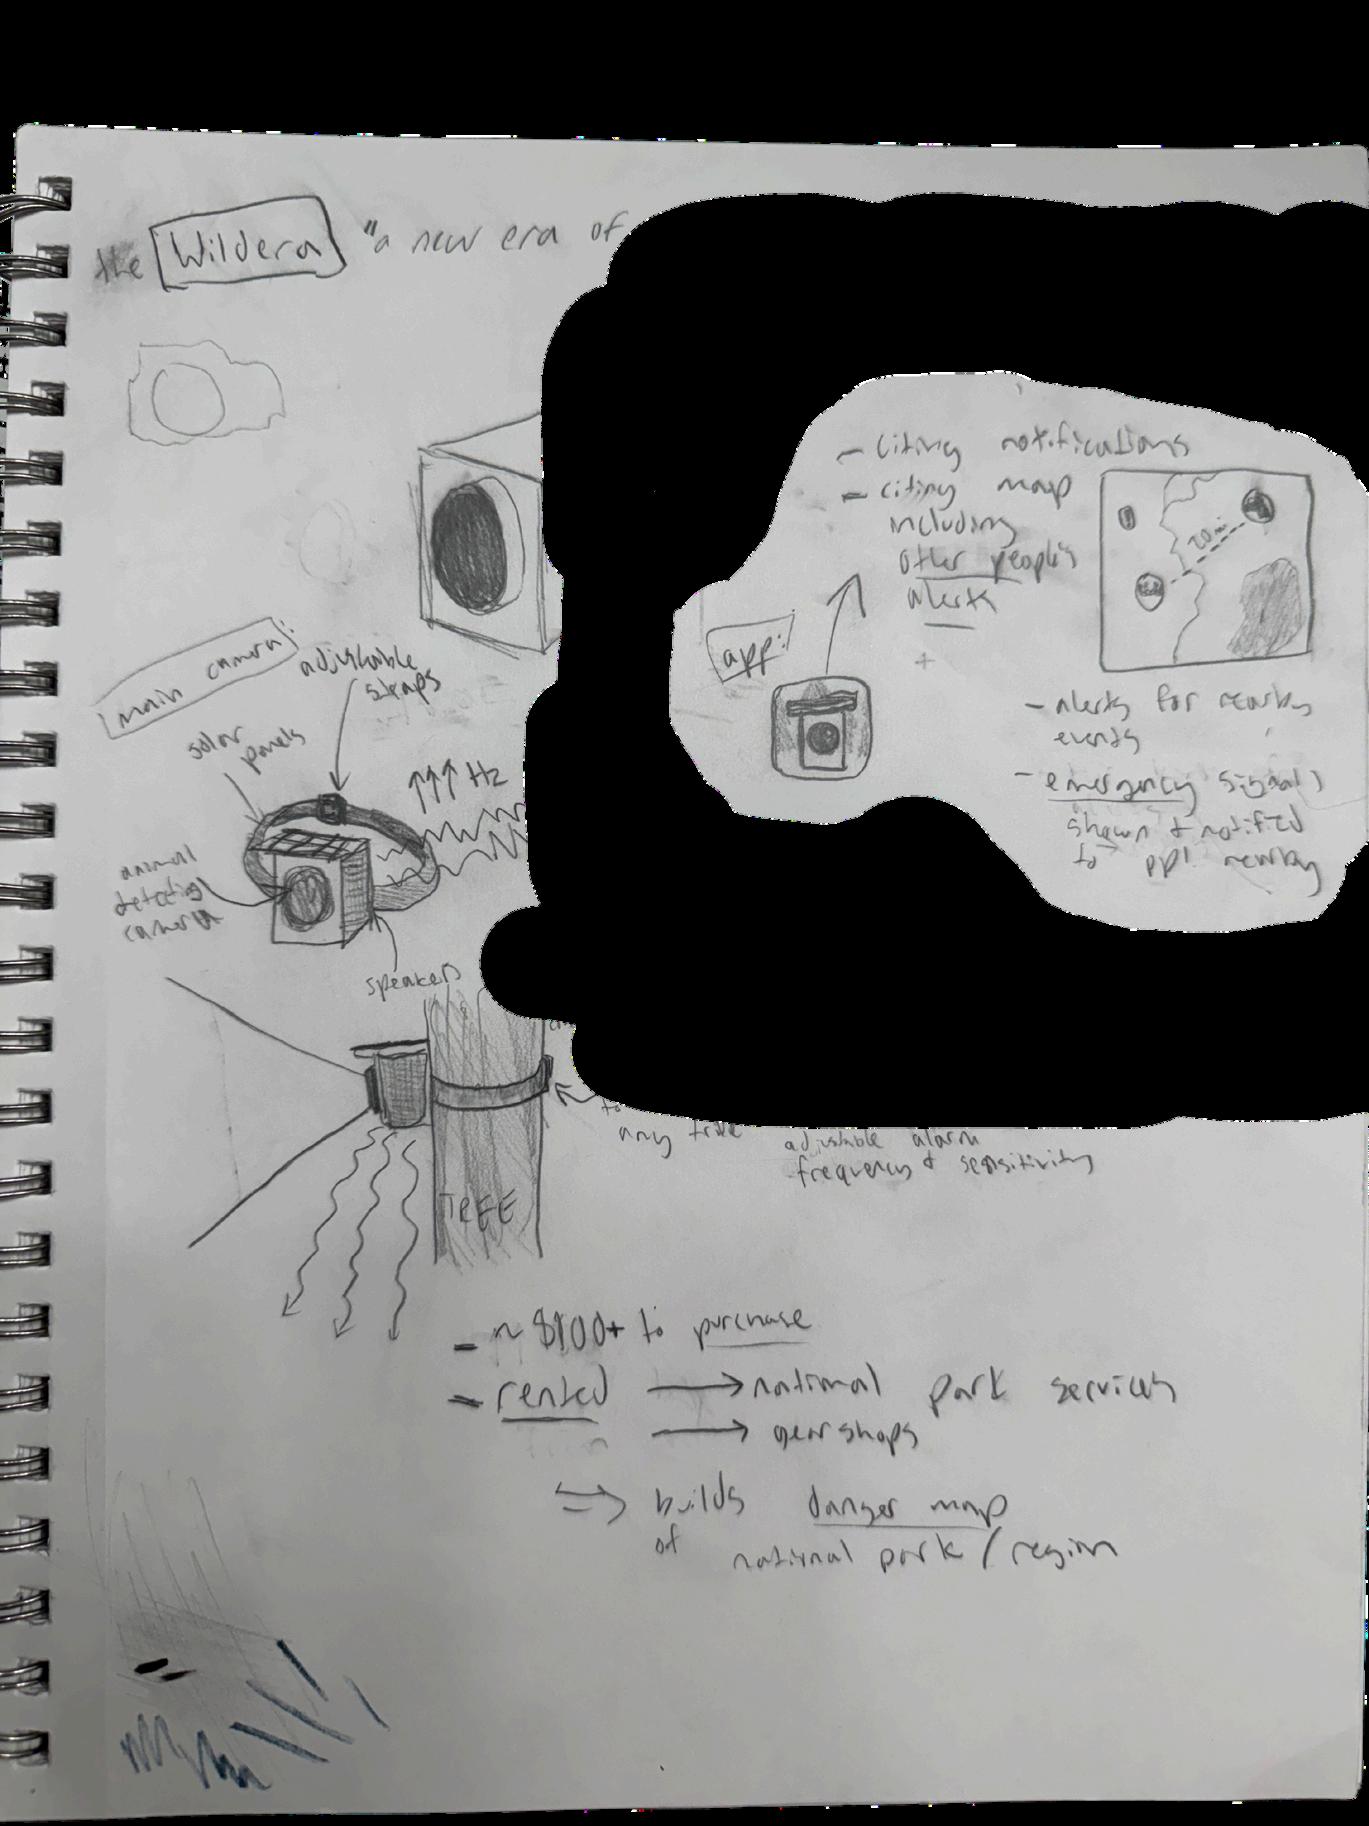 the Wildera "a new era of
main camera:
adjustable
straps
solar
panels
↑↑↑ Hz
animal
detecting
camera
speakers
TREE
to
any tree
adjustable alarm
frequency & sensitivity
app:
- citing notifications
- citing map
including
other people's
alerts
+
20 mi
- alerts for nearby
events
- emergency signals
shown & notified
to ppl nearby
- ~ $100+ to purchase
- rented → national park services
→ gear shops
⇒ builds danger map
of national park/region